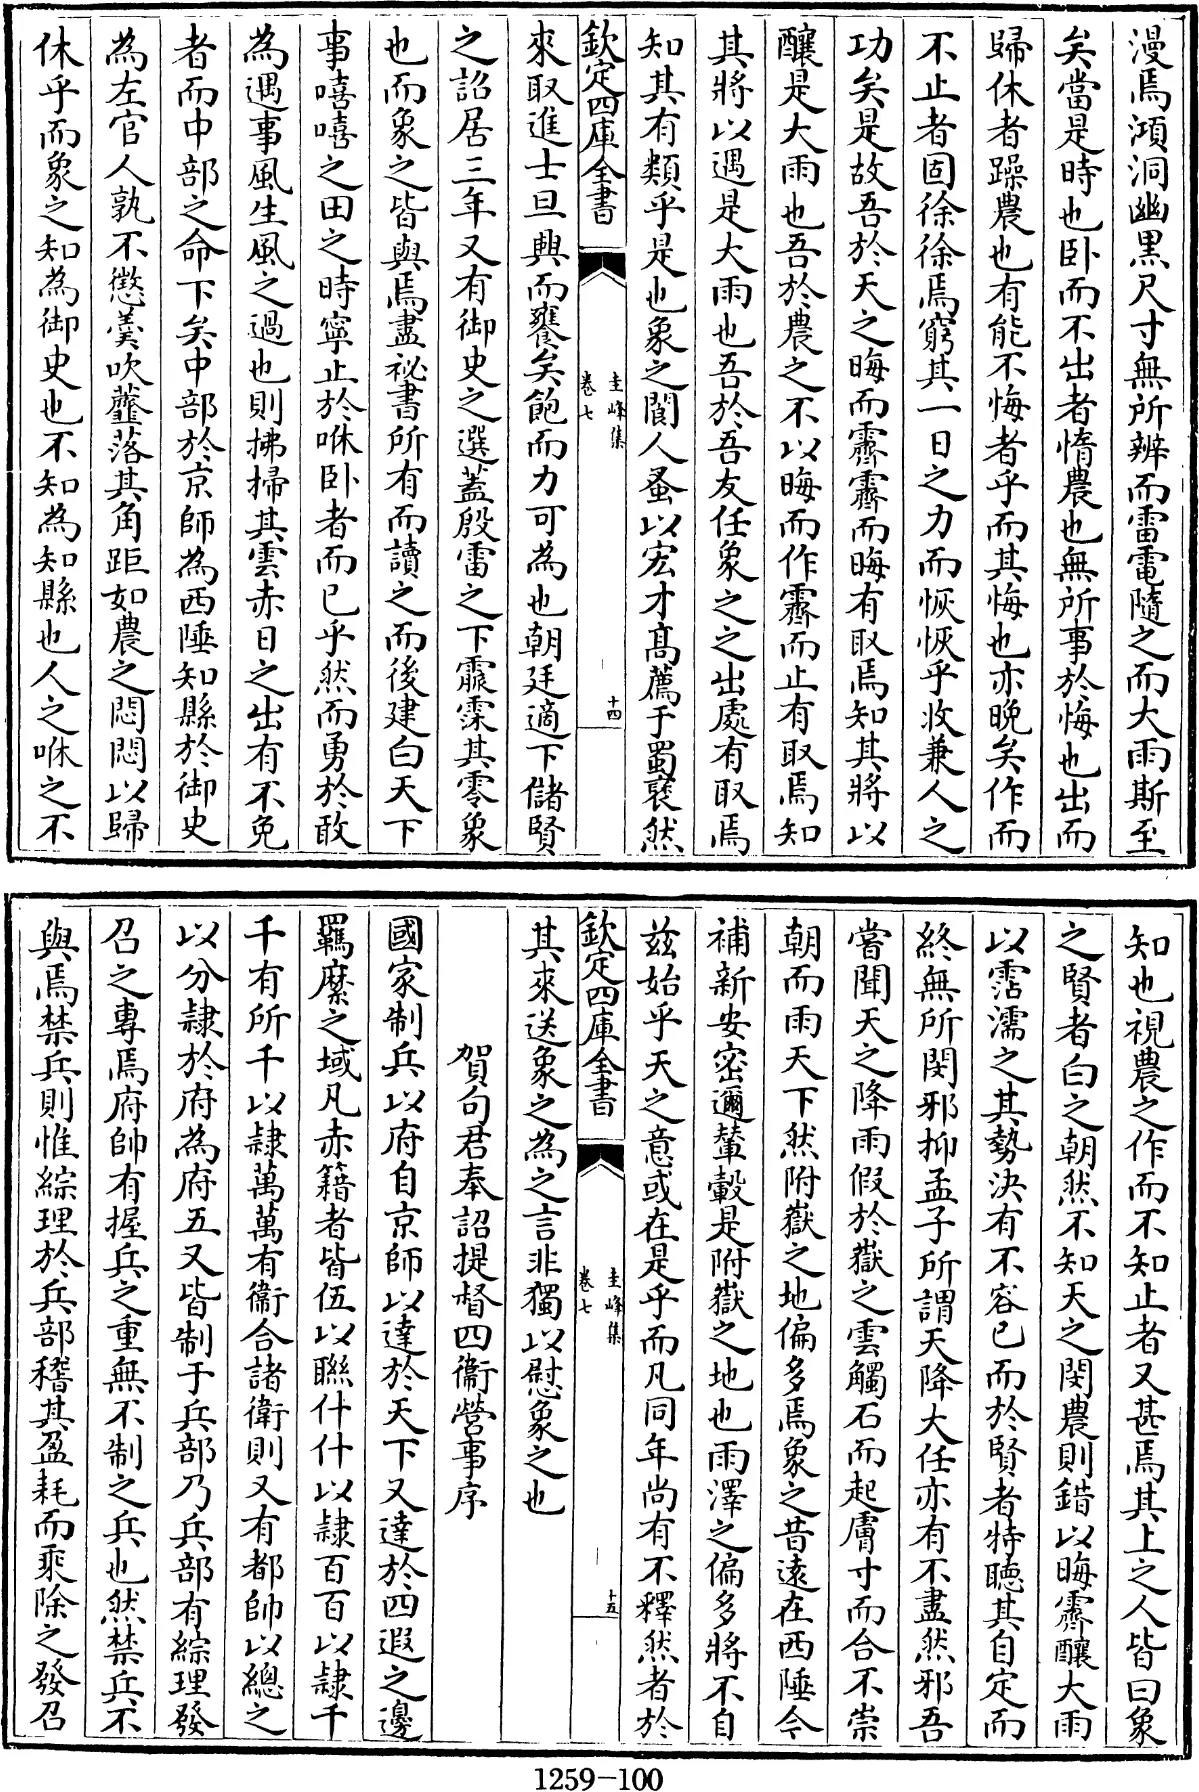 漫焉澒洞幽黑尺寸無所辨而雷電隨之而大雨斯至
矣當是時也卧而不出者惰農也無所事於悔也出而
歸休者躁農也有能不悔者乎而其悔也亦晚矣作而
不止者固徐徐焉窮其一日之力而恢恢乎收兼人之
功矣是故吾於天之晦而霽霽而晦有取焉知其將以
釀是大雨也吾於農之不以晦而作霽而止有取焉知
其將以遇是大雨也吾於吾友任象之之出處有取焉
知其有類乎是也象之閬人蚤以宏才髙薦于蜀裦然
欽定四庫全書
圭峰集
卷七
十四
來取進士旦興而饔矣飽而力可為也朝廷適下儲賢
之詔居三年又有御史之選蓋殷雷之下霢霂其零象
也而象之皆與焉盡祕書所有而讀之而後建白天下
事嘻嘻之田之時寧止於咻卧者而已乎然而勇於敢
為遇事風生風之過也則拂掃其雲赤日之出有不免
者而中部之命下矣中部於京師為西陲知縣於御史
為左官人孰不懲羮吹虀落其角距如農之悶悶以歸
休乎而象之知為御史也不知為知縣也人之咻之不
知也視農之作而不知止者又甚焉其上之人皆曰象
之賢者白之朝然不知天之閔農則錯以晦霽釀大雨
以霑濡之其勢決有不容已而於賢者特聽其自定而
終無所閔邪抑孟子所謂天降大任亦有不盡然邪吾
嘗聞天之降雨假於嶽之雲觸石而起膚寸而合不崇
朝而雨天下然附嶽之地偏多焉象之昔遠在西陲今
補新安密邇輦轂是附嶽之地也雨澤之偏多將不自
茲始乎天之意或在是乎而凡同年尚有不釋然者於
欽定四庫全書
圭峰集
卷七
十五
其來送象之為之言非獨以慰象之也
賀句君奉詔提督四衞營事序
國家制兵以府自京師以達於天下又達於四遐之邊
羈縻之域凡赤籍者皆伍以聯什什以隷百百以隷千
千有所千以隷萬萬有衞合諸衞則又有都帥以總之
以分隷於府為府五又皆制于兵部乃兵部有綜理發
召之專焉府帥有握兵之重無不制之兵也然禁兵不
與焉禁兵則惟綜理於兵部稽其盈耗而乘除之發召
1259-100